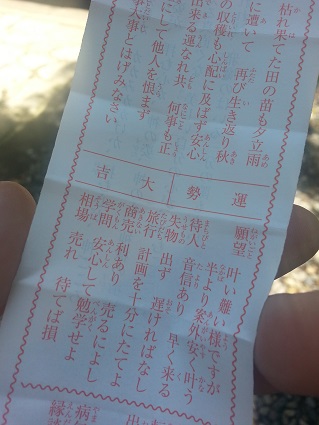 枯れ果てた田の苗も夕立雨
に遭いて 再び生き返り秋
の収穫も心配に及ばず安心
出来る運なれ共 何事も正
にして他人を恨まず
事大事とはげみなさい
運勢 大吉
願望 叶い難い様ですが
半より案外安く叶う
待人 音信あり 早く来る
失物 出ず 遅ければなし
旅行 計画を十分にたてよ
商売 利あり 売るによし
学問 安心して勉学せよ
相場 売れ 待てば損
病
出
縁